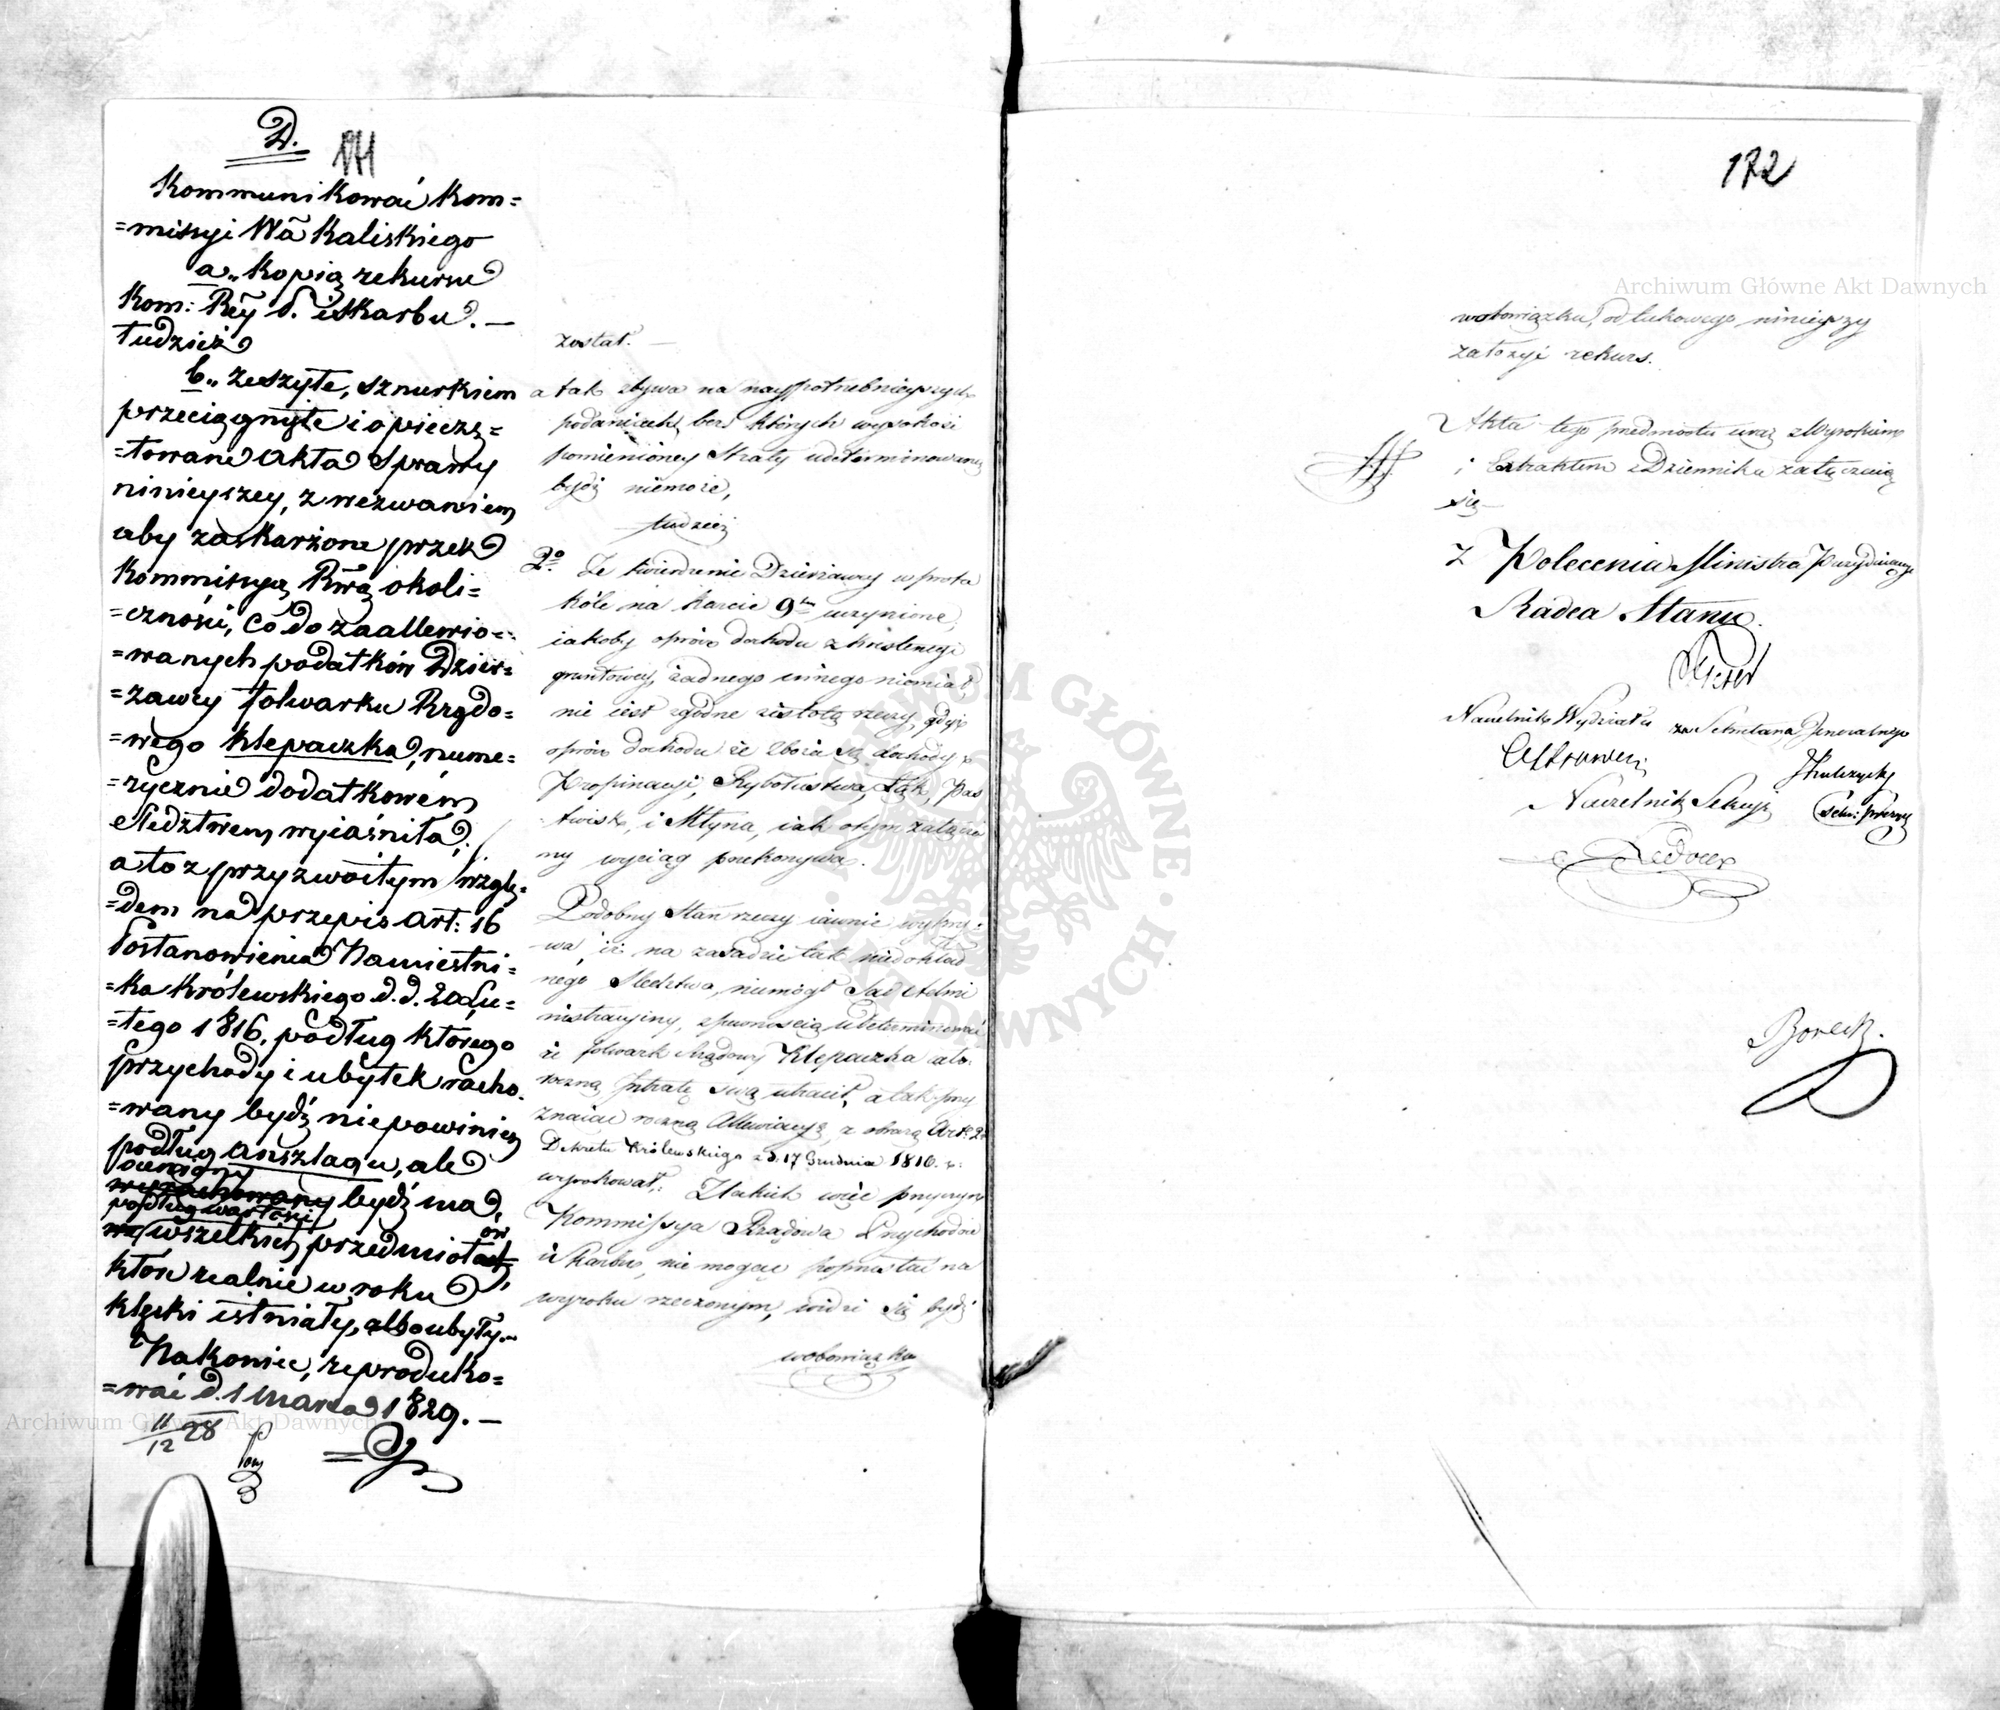 D.
171
Kommunikować Kom=
=missyi Wã Kaliskiego
a„ Kopią rekursu
Kom: Rẽy P. i Skarbu. —
tudzież
b„ Zeszyte, sznurkiem
przeciągnięte i opieczę=
=towane akta Sprawy
ninieyszey, z wezwaniem
aby zaskarżone przez
Kommissyą Rwą okoli=
=czności, co do zaallewio=
=wanych podatków Dzier=
=zawcy folwarku Rządo=
=wego Klepaczka, nume=
=rycznie dodatkowém
Sledztwem wyiaśniła,
a to z przyzwoitym wzglę=
=dem na przepis art: 16
Postanowienia Namiestni=
=ka Królewskiego d. d. 20 Lu=
=tego 1816, podług którego
przychody i ubytek racho=
=wany bydź niepowinien
podług anszlagu, ale
oceniony
wyrachowany bydź ma,
podług wartości
we wszelkich przedmiotach,
ów
które realnie w roku
klęski istniały, albo ubyły. —
Nakoniec, reproduko=
=wać d. 1 Marca 1829. —
11/12 28
został. —
a tak zbywa na naypotrzebnieyszych
podaniach, bez których wysokość
pomienioney Straty udeterminowaną
bydź niemoże,
tudzież
2o. Że twierdzenie Dzierżawcy w proto
kóle na karcie 9tey uczynione,
iakoby oprócz dochodu z krescencyi
gruntowey, żadnego innego niemiał,
nie iest zgodne z istotą rzeczy, gdyż
oprócz dochodu ze zboża są dochody z
Propinacyi, Rybołustwa, Łąk, Pas
twisk, i Młyna, iak o tym załączo
ny wyciąg przekonywa.
Podobny Stan rzeczy iawnie wykry=
wa, iż na zasadzie tak niedokład
nego Sledztwa, niemógł Sąd Admi
nistracyiny, z pewnością udeterminować
że folwark Rządowy Klepaczka cało
roczną Intratę swą utracił, a tak przy
znaiąc roczną Allewiacyą, z obrazą Art: 2o
Dekretu Królewskiego z d. 17 Grudnia 1810. r.
wyrokował. Z takich więc przyczyn
Kommissya Rządowa Przychodów
i Skarbu, nie mogąc poprzestać na
wyroku rzeczonym, widzi się bydź
w obowiązku
172
w obowiązku, od takowego ninieyszy
założyć rekurs.
Akta tego przedmiotu wraz z Wyrokiem
i Extraktem z Dziennika załączaią
się —
Z Polecenia Ministra Prezyduiącego
Radca Stanu
Naczelnik Wydziału za Sekretarza Jeneralnego
Naczelnik Sekcyi